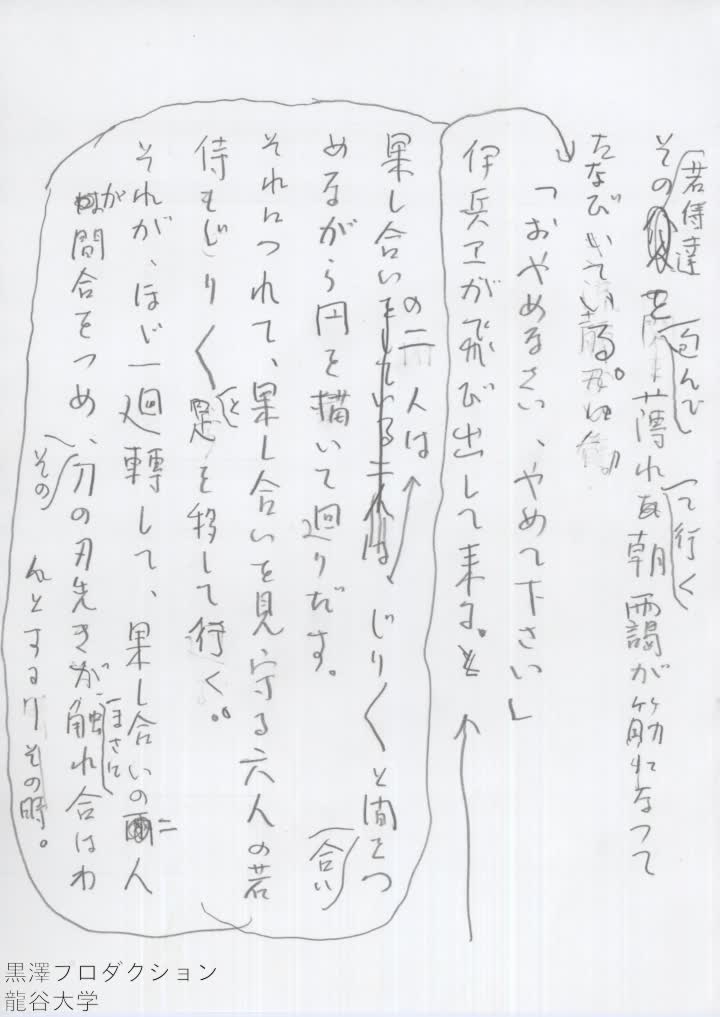 その若侍達を包んで薄れて行く朝靄が筋になって
たなびいている。
「おやめなさい、やめて下さい」
伊兵ヱが飛び出して来る。
果し合いの二人は、じりじりと間合いをつ
めながら円を描いて回りだす。
それにつれて、果し合いを見守る六人の若
侍もじりじりと足を移して行く。
それが、ほゞ一廻轉して、果し合いの二人
が間合をつめ、その刀の刃先きがまさに触れ合はわ
んとする
その時。
黒澤プロダクション
龍谷大学